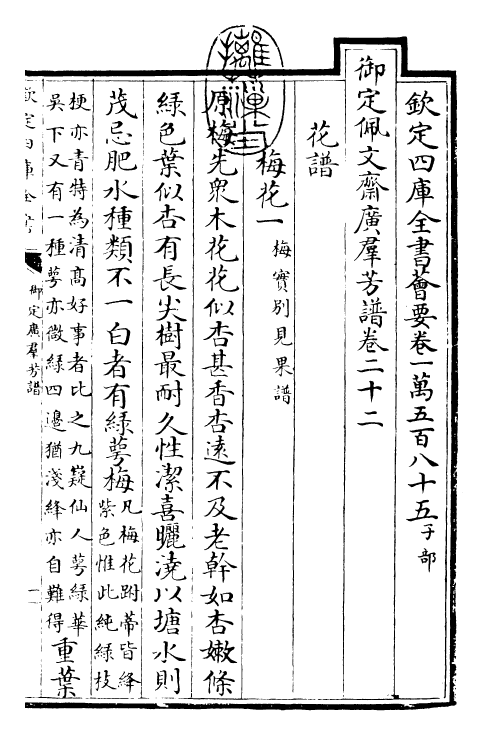 欽定四庫全書薈要卷一萬五百八十五子部
御定佩文齋廣羣芳譜卷二十二
花譜
梅花一梅實別見果譜
原梅先衆木花花似杏甚香杏遠不及老幹如杏嫩條
綠色葉似杏有長尖樹最耐久性潔喜曬澆以塘水則
茂忌肥水種類不一白者有綠萼梅凡梅花跗蒂皆絳
紫色惟此純綠枝
梗亦青特為清高好事者比之九嶷仙人萼綠華
吳下又有一種萼亦微綠四邊猶淺絳亦自難得重葉
欽定四庫全書
御定廣羣芳譜
一